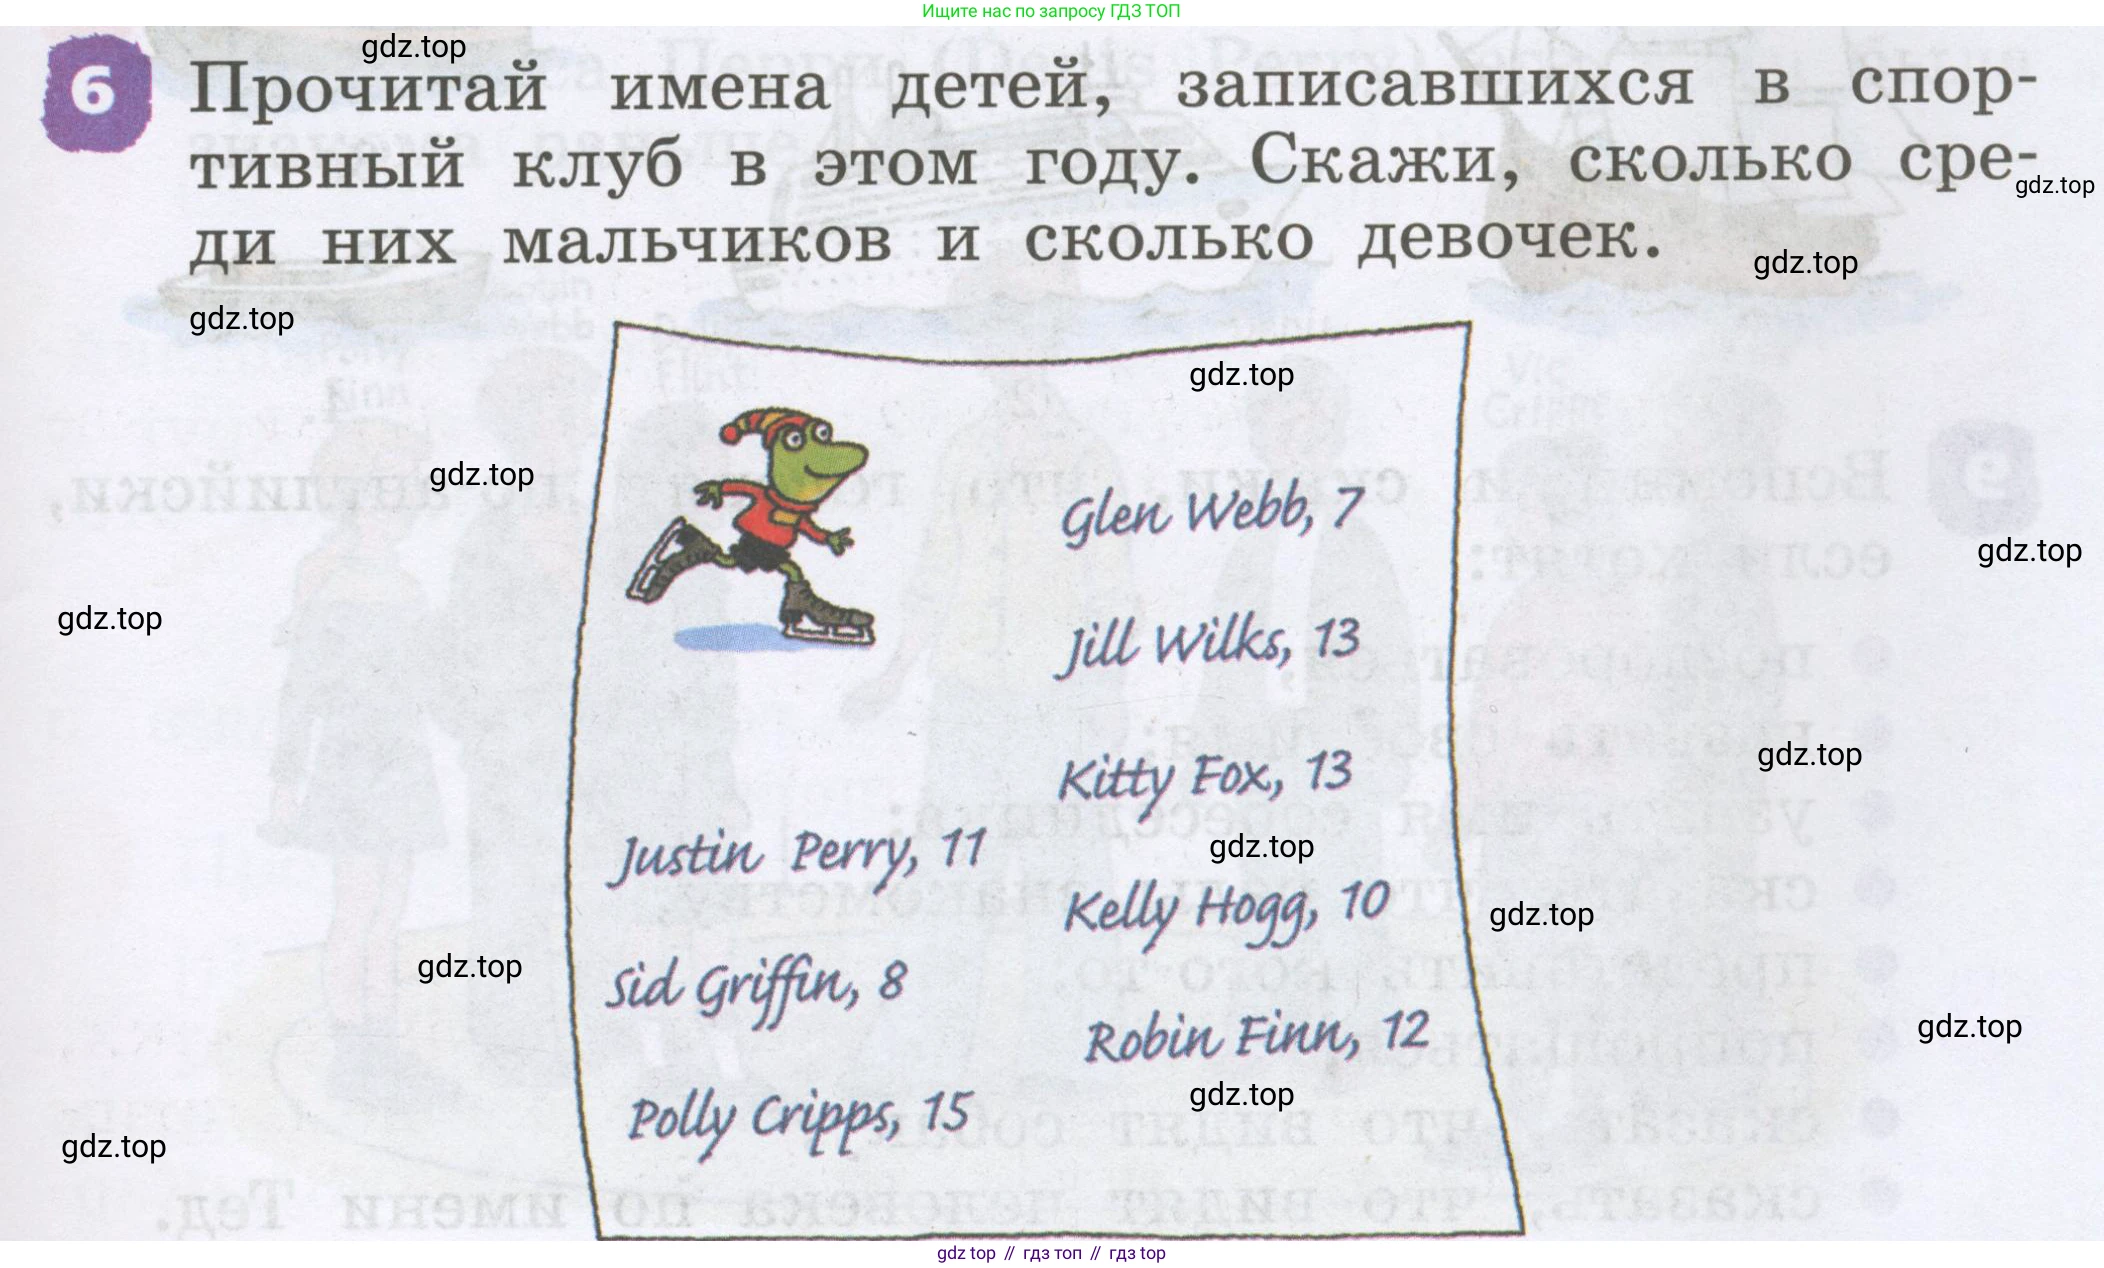 Ищите нас по запросу ГДЗ ТОП
gdz.top
6 Прочитай имена детей, записавшихся в спор-
тивный клуб в этом году. Скажи, сколько сре-
gdz.top
ди них мальчиков и сколько девочек.
gdz.top
gdz.top
gdz.top
gdz.top
Glen Webb, 7
gdz.top
gdz.top
Jill Wilks, 13
gdz.top
Kitty Fox, 13
Justin Perry, 11
gdz.top
Kelly Hogg, 10
gdz.top
gdz.top
Sid Griffin, 8
Robin Finn, 12
gdz.top
gdz.top
Polly Cripps, 15
gdz.top
gdz top // гдз топ // гдз top